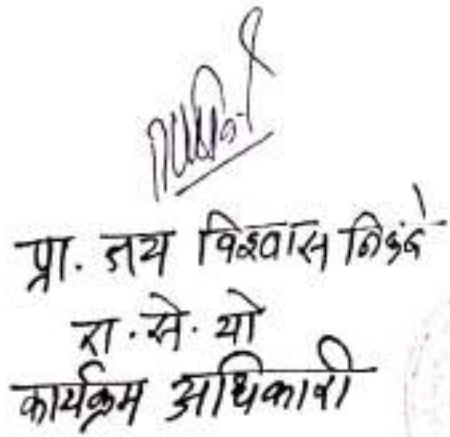 प्रा. जय विश्वास
रा. से. यो
कार्यक्रम अधिकारी